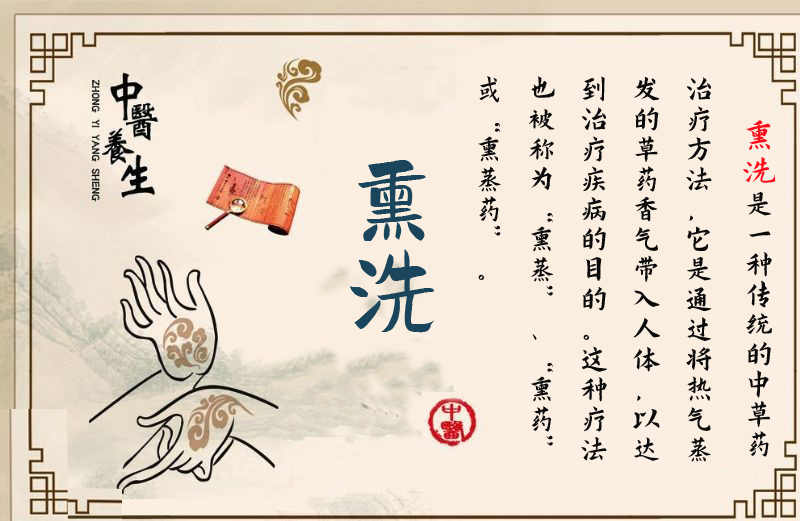 熏洗是一种传统的中草药
治疗方法,它是通过将热气蒸
发的草药香气带入人体,以达
到治疗疾病的目的。这种疗法
也被称为“熏蒸”、“熏药”
或“熏蒸药”。
熏洗
中醫養生
ZHONG YI YANG SHENG
中醫